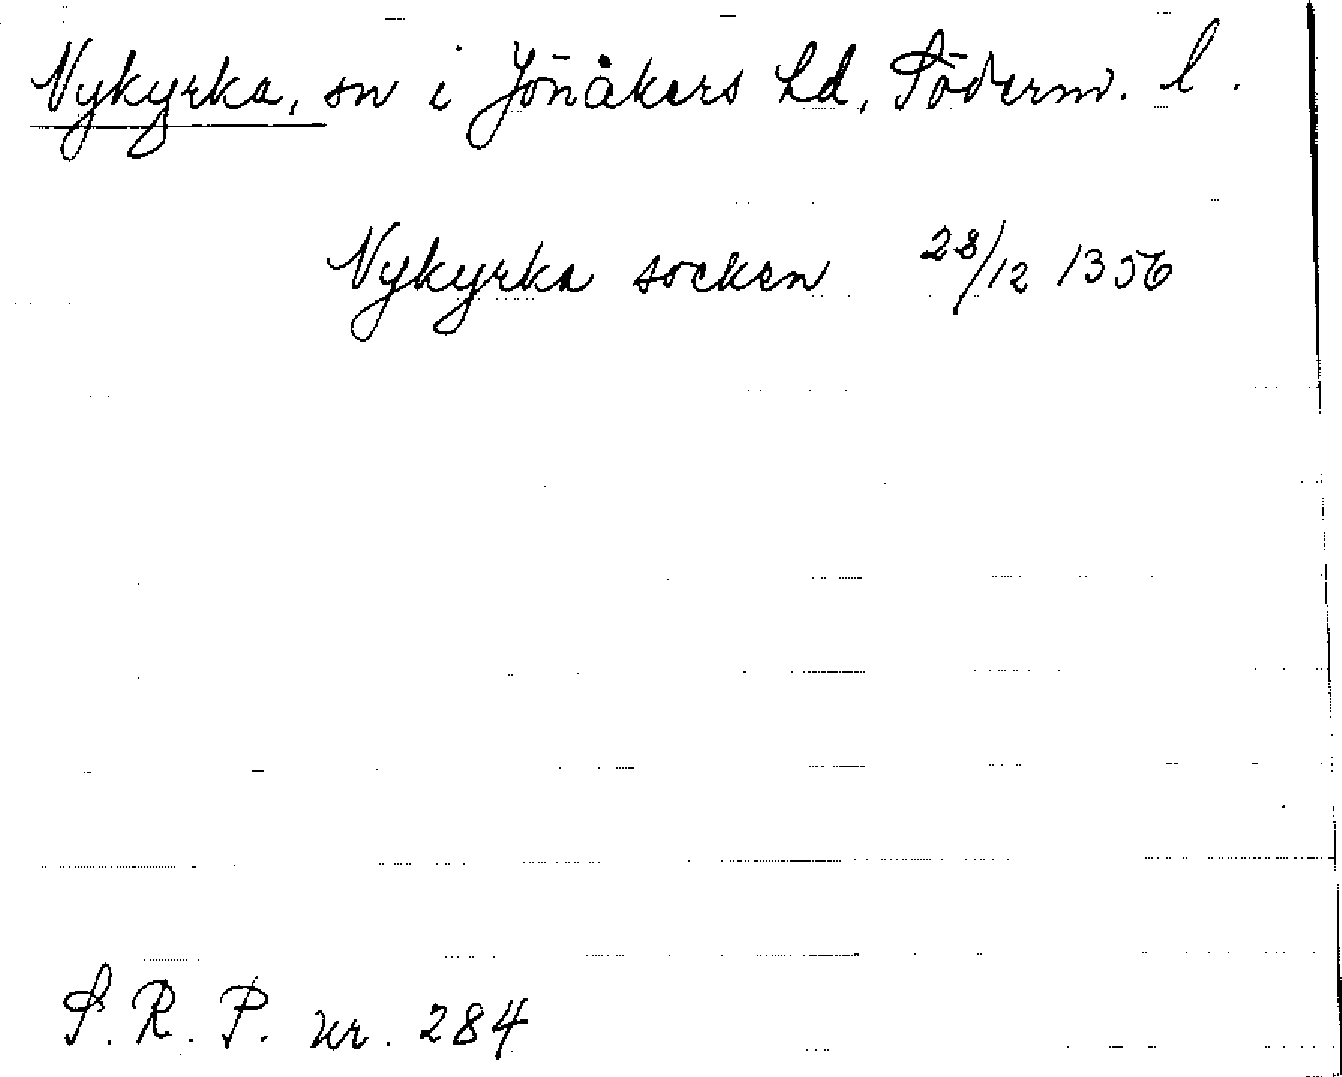 Nykyrka, sn i Jönåkers hd, Söderm. l.
Nykyrka socken 28/12 1356
S. R. P. nr. 284